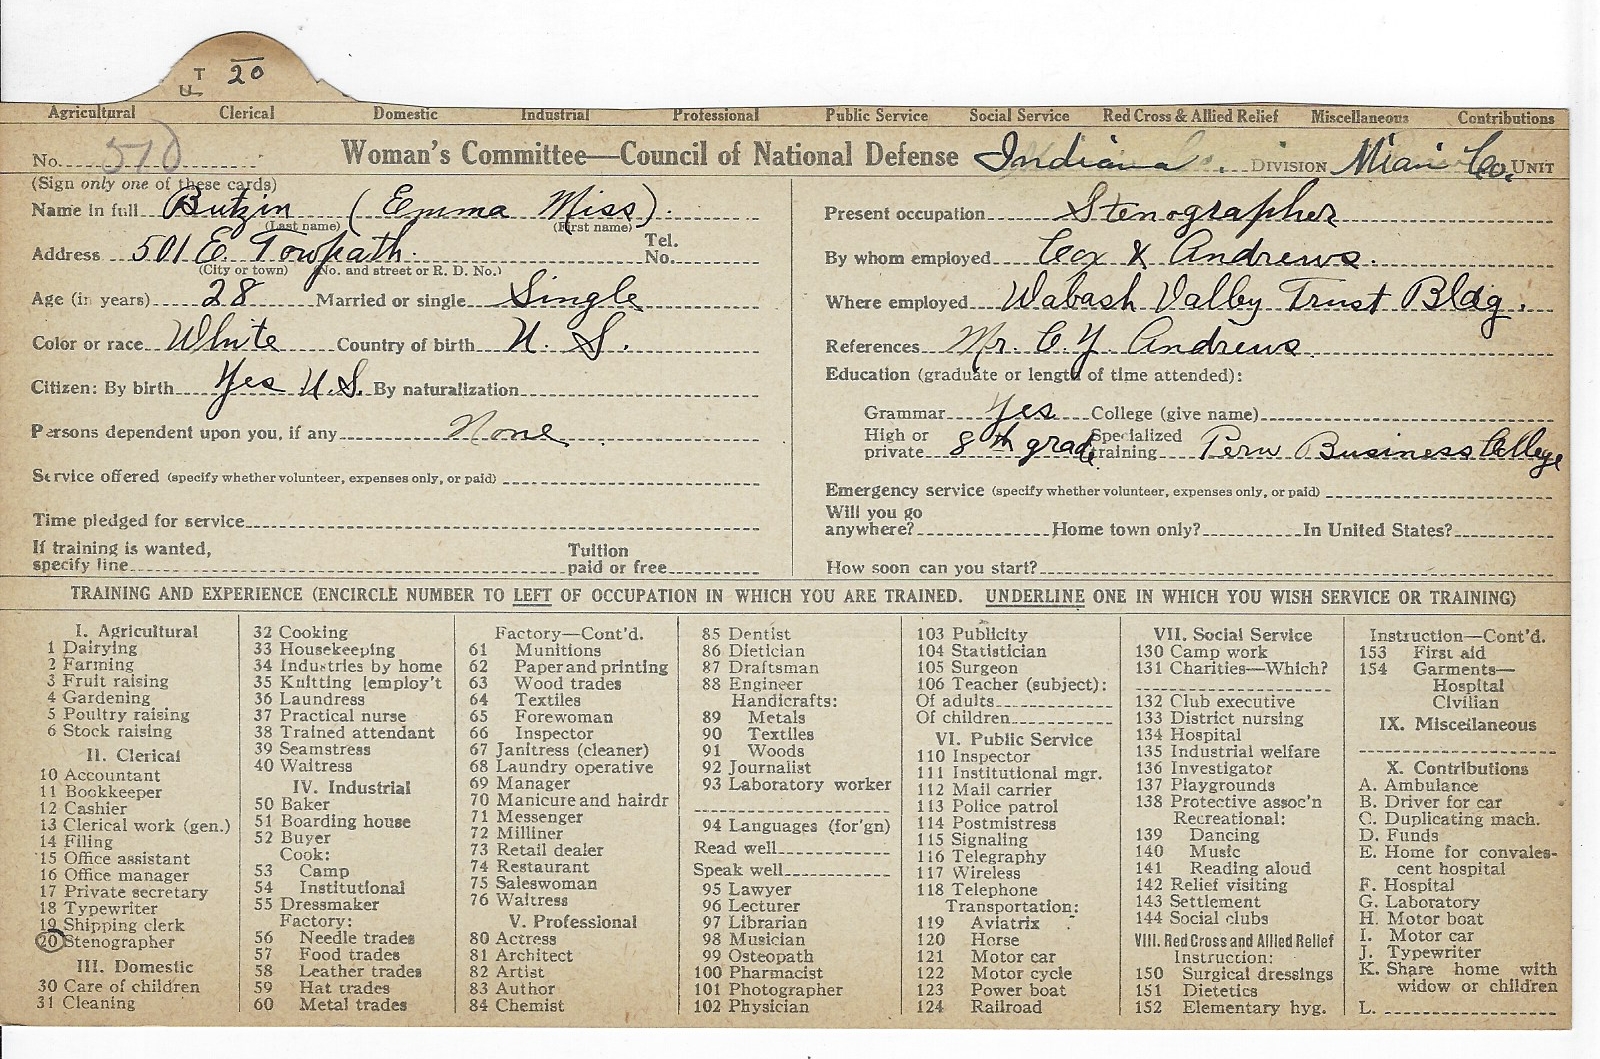 T 20
U
Agricultural Clerical Domestic Industrial Professional Public Service Social Service Red Cross & Allied Relief Miscellaneous Contributions
No. 510 Woman's Committee—Council of National Defense Indiana. DIVISION Miami Co. UNIT
(Sign only one of these cards)
Name in full Butzin (Emma Miss).
(Last name) (First name)
Address 501 E. Towpath. Tel. No.
(City or town) (No. and street or R. D. No.)
Age (in years) 28 Married or single Single
Color or race White Country of birth U. S.
Citizen: By birth Yes U.S. By naturalization
Persons dependent upon you, if any None
Service offered (specify whether volunteer, expenses only, or paid)
Time pledged for service
If training is wanted, specify line Tuition paid or free
Present occupation Stenographer
By whom employed Cox & Andrews.
Where employed Wabash Valley Trust Bldg.
References Mr. C. Y. Andrews.
Education (graduate or length of time attended):
Grammar Yes College (give name)
High or private 8th grade Specialized training Peru Business College
Emergency service (specify whether volunteer, expenses only, or paid)
Will you go anywhere? Home town only? In United States?
How soon can you start?
TRAINING AND EXPERIENCE (ENCIRCLE NUMBER TO LEFT OF OCCUPATION IN WHICH YOU ARE TRAINED. UNDERLINE ONE IN WHICH YOU WISH SERVICE OR TRAINING)
I. Agricultural
1 Dairying
2 Farming
3 Fruit raising
4 Gardening
5 Poultry raising
6 Stock raising
II. Clerical
10 Accountant
11 Bookkeeper
12 Cashier
13 Clerical work (gen.)
14 Filing
15 Office assistant
16 Office manager
17 Private secretary
18 Typewriter
19 Shipping clerk
20 Stenographer
III. Domestic
30 Care of children
31 Cleaning
32 Cooking
33 Housekeeping
34 Industries by home
35 Knitting [employ't
36 Laundress
37 Practical nurse
38 Trained attendant
39 Seamstress
40 Waitress
IV. Industrial
50 Baker
51 Boarding house
52 Buyer
Cook:
53 Camp
54 Institutional
55 Dressmaker
Factory:
56 Needle trades
57 Food trades
58 Leather trades
59 Hat trades
60 Metal trades
Factory—Cont'd.
61 Munitions
62 Paper and printing
63 Wood trades
64 Textiles
65 Forewoman
66 Inspector
67 Janitress (cleaner)
68 Laundry operative
69 Manager
70 Manicure and hairdr
71 Messenger
72 Milliner
73 Retail dealer
74 Restaurant
75 Saleswoman
76 Waitress
V. Professional
80 Actress
81 Architect
82 Artist
83 Author
84 Chemist
85 Dentist
86 Dietician
87 Draftsman
88 Engineer
Handicrafts:
89 Metals
90 Textiles
91 Woods
92 Journalist
93 Laboratory worker
94 Languages (for'gn)
Read well
Speak well
95 Lawyer
96 Lecturer
97 Librarian
98 Musician
99 Osteopath
100 Pharmacist
101 Photographer
102 Physician
103 Publicity
104 Statistician
105 Surgeon
106 Teacher (subject):
Of adults
Of children
VI. Public Service
110 Inspector
111 Institutional mgr.
112 Mail carrier
113 Police patrol
114 Postmistress
115 Signaling
116 Telegraphy
117 Wireless
118 Telephone
Transportation:
119 Aviatrix
120 Horse
121 Motor car
122 Motor cycle
123 Power boat
124 Railroad
VII. Social Service
130 Camp work
131 Charities—Which?
132 Club executive
133 District nursing
134 Hospital
135 Industrial welfare
136 Investigator
137 Playgrounds
138 Protective assoc'n
Recreational:
139 Dancing
140 Music
141 Reading aloud
142 Relief visiting
143 Settlement
144 Social clubs
VIII. Red Cross and Allied Relief
Instruction:
150 Surgical dressings
151 Dietetics
152 Elementary hyg.
Instruction—Cont'd.
153 First aid
154 Garments—
Hospital
Civilian
IX. Miscellaneous
X. Contributions
A. Ambulance
B. Driver for car
C. Duplicating mach.
D. Funds
E. Home for convales-
cent hospital
F. Hospital
G. Laboratory
H. Motor boat
I. Motor car
J. Typewriter
K. Share home with
widow or children
L.